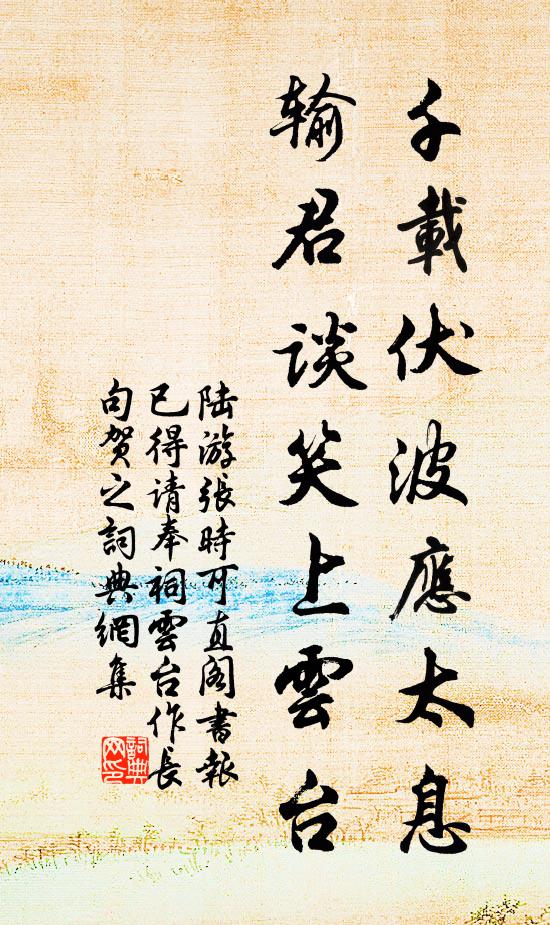 千載伏波應太息
輸君谈笑上雲台
陆游張時可直阁書報
已得请奉祠雲台作長
句贺之詞典網集
詞典
网印